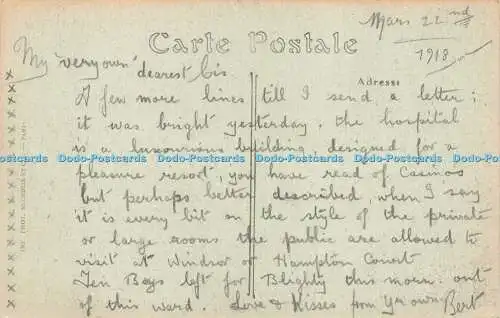 Mars 22nd
1918
Carte Postale
Adresse
My "very own" dearest Cis
A few more lines till I send a letter;
it was bright yesterday. the hospital
is a luxourious building designed for a
Dodo-Postcards Dodo-Postcards Dodo-Postcards Dodo-Postcards Dodo-Postcards
pleasure resort, you have read of Casinos
but perhaps better described, when I say
it is every bit on the style of the private
or large rooms the public are allowed to
visit at Windsor or Hampton Court
Ten Boys left for Blighty this morn: out
of this ward. Love & Kisses from Yr own Bert